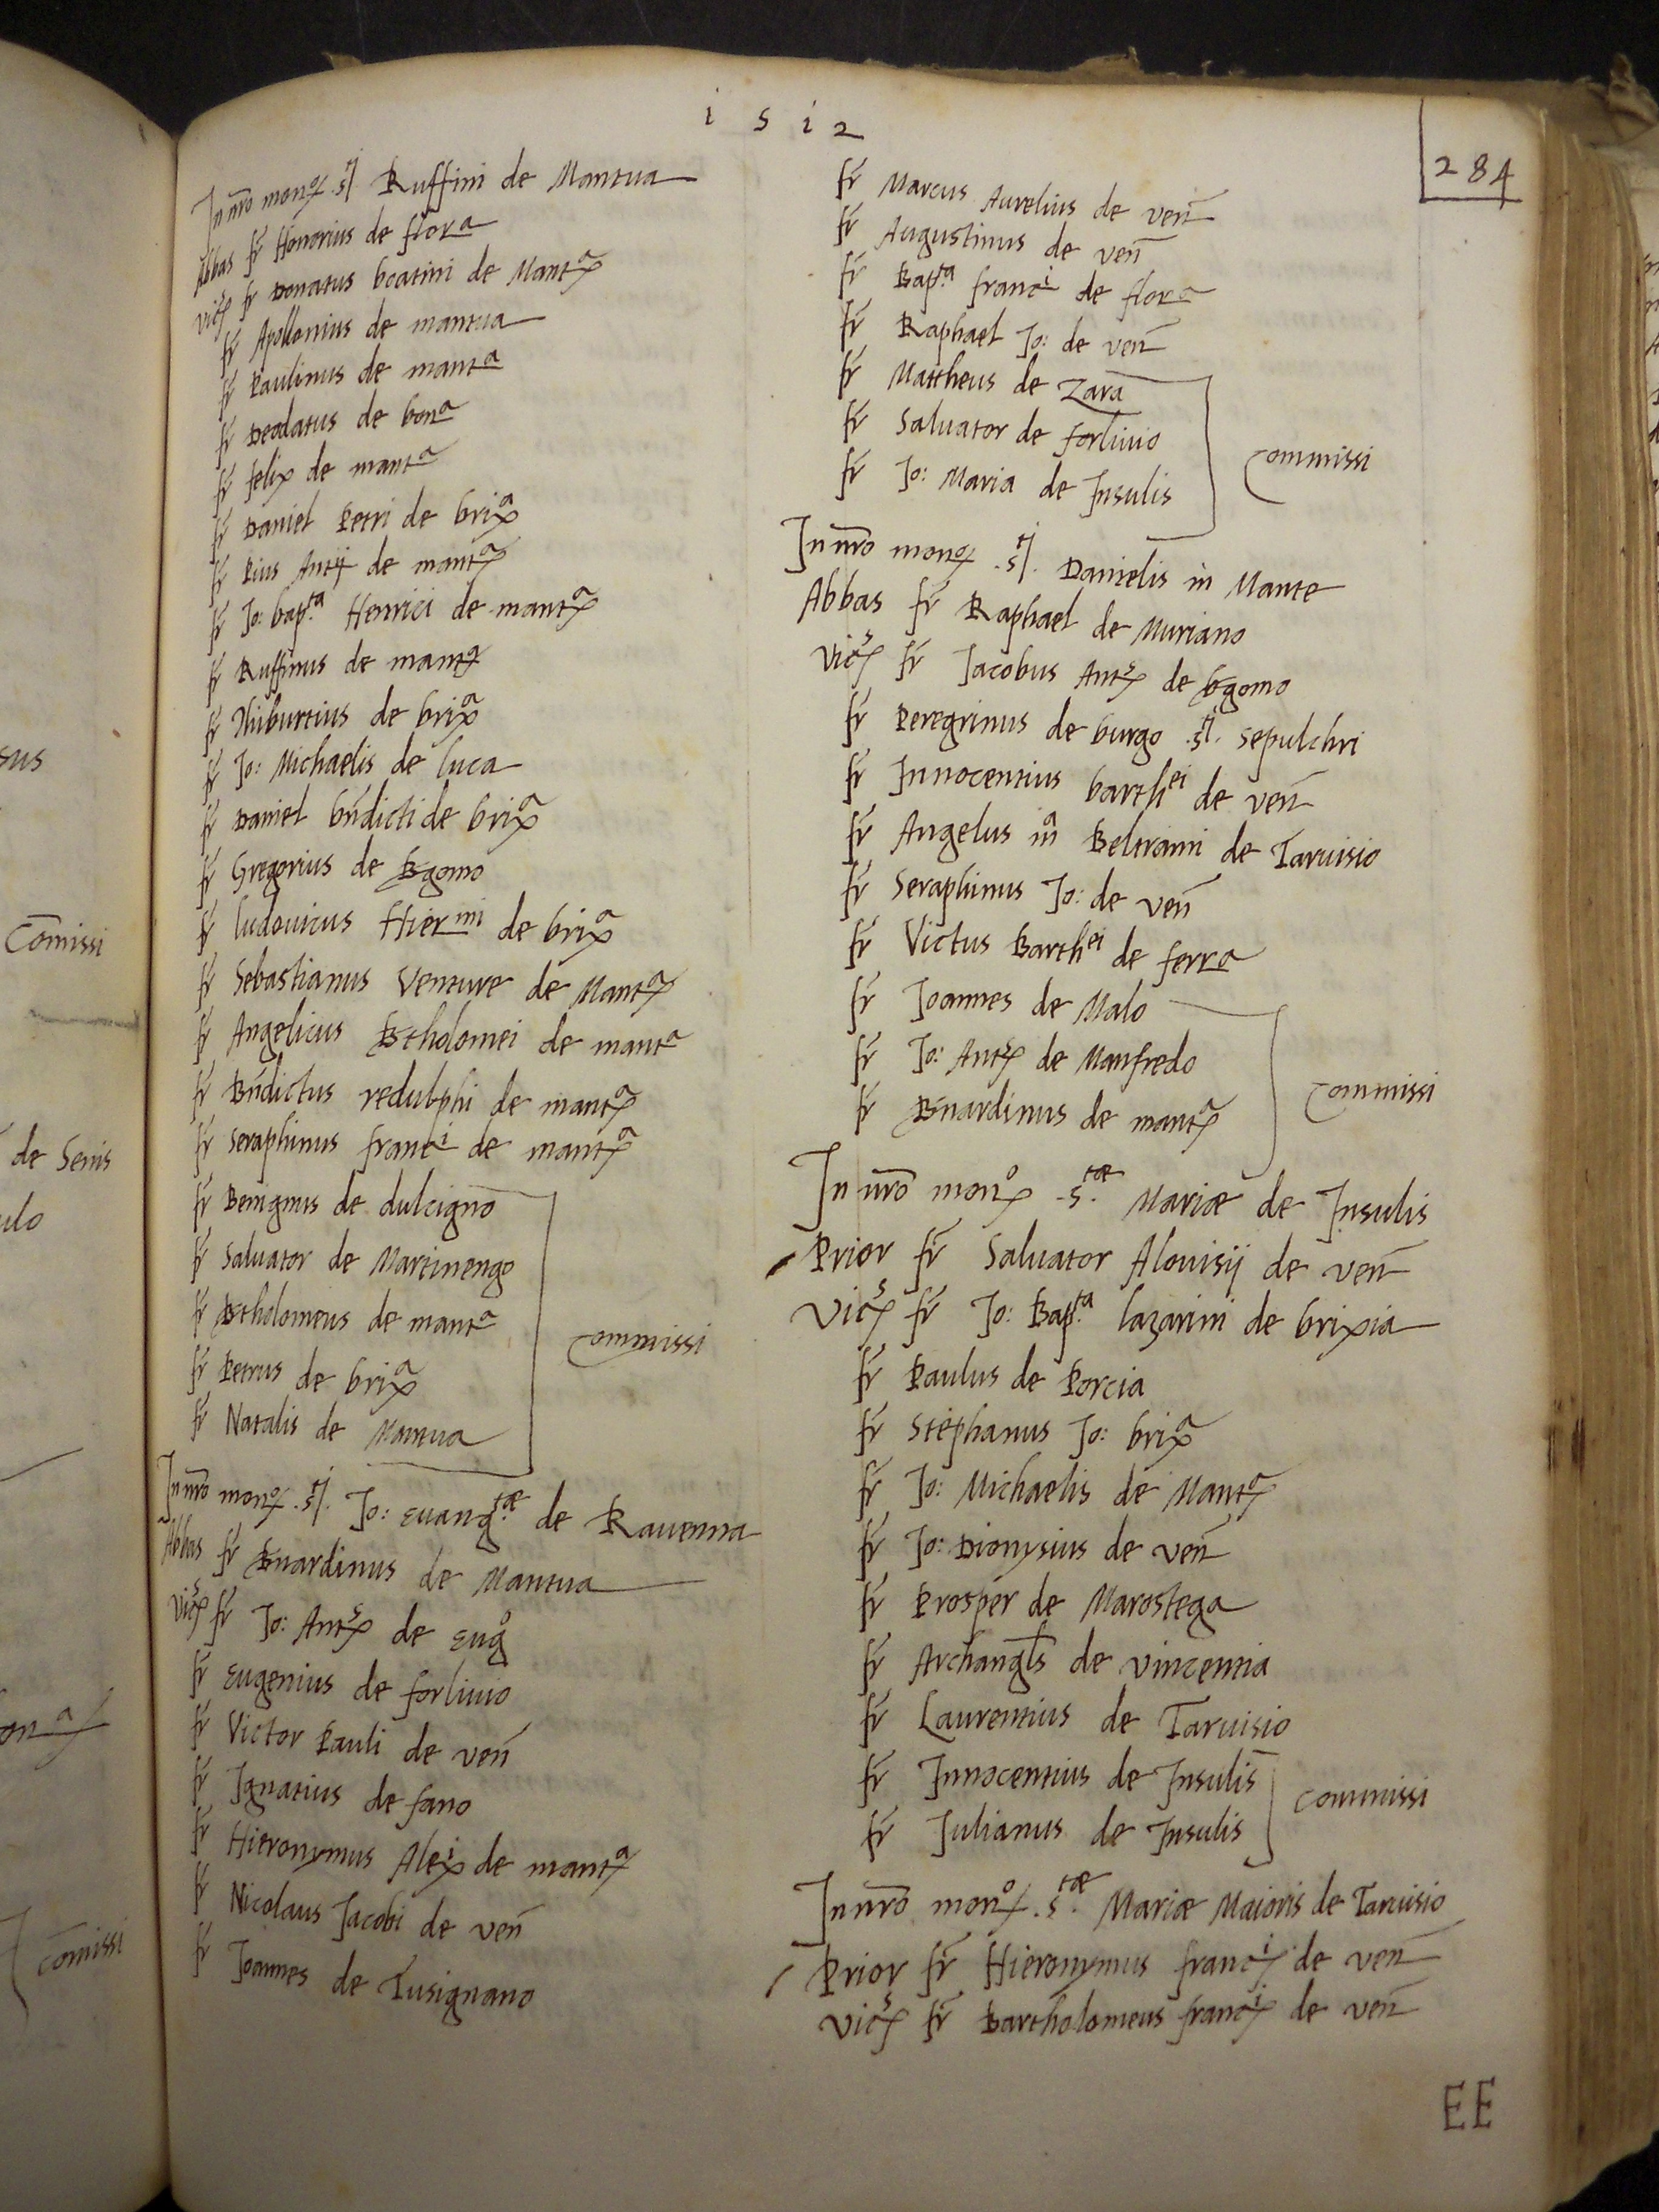 i 5 i 2
284
In nr̃o monox s.ti Ruffini de Mantua
Abbas fr̃ Honorius de flora
Vics fr̃ Donatus boatini de Manta
fr̃ Apollonius de mantua
fr̃ Paulinus de manta
fr̃ Deodatus de bona
fr̃ felix de manta
fr̃ Daniel Petri de brixa
fr̃ Pius Antij de manta
fr̃ Jo: bapta Henrici de manta
fr̃ Ruffinus de manta
fr̃ Thiburtius de brixa
fr̃ Jo: Michaelis de luca
fr̃ Daniel bñdicti de brixa
fr̃ Gregorius de Bgomo
fr̃ ludouicus Hiermi de brixa
fr̃ Sebastianus Venture de Manta
fr̃ Angelicus Btholomei de manta
fr̃ Bñdictus redulphi de manta
fr̃ Seraphinus franci de manta
fr̃ Benignus de dulcigno
fr̃ Saluator de Martinengo
fr̃ Btholomeus de manta
fr̃ Petrus de brixa
fr̃ Natalis de Mantua
commissi
In nr̃o monox .s.ti Jo: euangtæ de Rauenna
Abbas fr̃ Bnardinus de Mantua
Vics fr̃ Jo: Ants de eugo
fr̃ Eugenius de forliuio
fr̃ Victor Pauli de veñ
fr̃ Ignatius de fano
fr̃ Hieronymus Alexi de manta
fr̃ Nicolaus Jacobi de veñ
fr̃ Joannes de Tusignano
fr̃ Marcus Aurelius de veñ
fr̃ Augustinus de veñ
fr̃ Bapta franci de flora
fr̃ Raphael Jo: de veñ
fr̃ Mattheus de Zara
fr̃ Saluator de forliuio
fr̃ Jo: Maria de Insulis
commissi
In nr̃o monox .s.ti Danielis in Mante
Abbas fr̃ Raphael de Muriano
Vics fr̃ Jacobus Ants de Bgomo
fr̃ Peregrinus de burgo .s.ti sepulchri
fr̃ Innocentius barthei de veñ
fr̃ Angelus ma Beltrami de Taruisio
fr̃ Seraphinus Jo: de veñ
fr̃ Victus Barthei de ferra
fr̃ Joannes de Malo
fr̃ Jo: Ants de Manfredo
fr̃ Bnardinus de manta
commissi
In nr̃o monox .s.tæ Mariæ de Insulis
Prior fr̃ Saluator Alouisij de veñ
Vics fr̃ Jo: Bapta lazarini de brixia
fr̃ Paulus de Porcia
fr̃ Stephanus Jo: brixa
fr̃ Jo: Michaelis de Manta
fr̃ Jo: Dionysius de veñ
fr̃ Prosper de Marostega
fr̃ Archangls de vincentia
fr̃ Laurentius de Taruisio
fr̃ Innocentius de Insulis
fr̃ Julianus de Insulis
commissi
In nr̃o monox .s.tæ Mariæ Maioris de Taruisio
Prior fr̃ Hieronymus franci de veñ
Vics fr̃ Bartholomeus franci de veñ
EE
sus
Com̃issi
de Senis
com̃issi